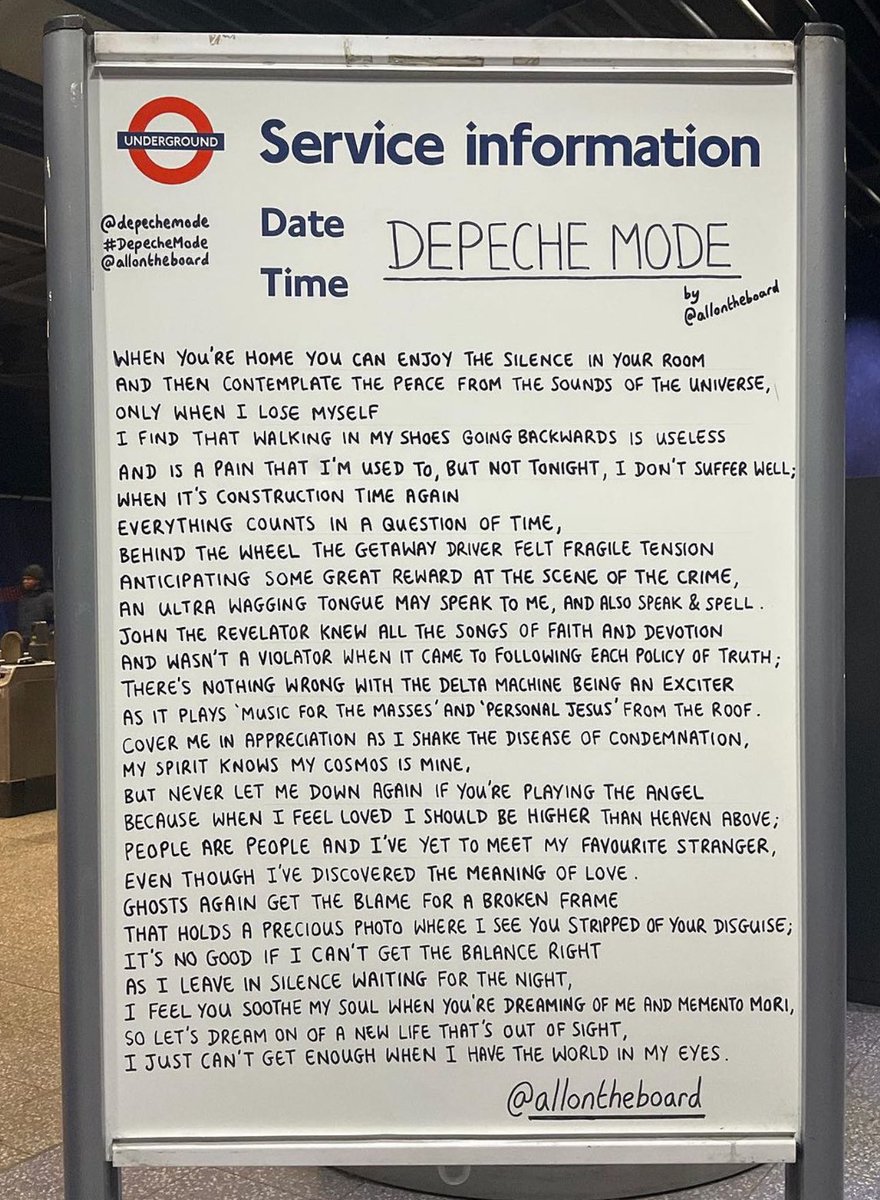 UNDERGROUND
Service information
@depechemode
#DepecheMode
@allontheboard
Date
Time
DEPECHE MODE
by
@allontheboard
WHEN YOU'RE HOME YOU CAN ENJOY THE SILENCE IN YOUR ROOM
AND THEN CONTEMPLATE THE PEACE FROM THE SOUNDS OF THE UNIVERSE,
ONLY WHEN I LOSE MYSELF
I FIND THAT WALKING IN MY SHOES GOING BACKWARDS IS USELESS
AND IS A PAIN THAT I'M USED TO, BUT NOT TONIGHT, I DON'T SUFFER WELL;
WHEN IT'S CONSTRUCTION TIME AGAIN
EVERYTHING COUNTS IN A QUESTION OF TIME,
BEHIND THE WHEEL THE GETAWAY DRIVER FELT FRAGILE TENSION
ANTICIPATING SOME GREAT REWARD AT THE SCENE OF THE CRIME,
AN ULTRA WAGGING TONGUE MAY SPEAK TO ME, AND ALSO SPEAK & SPELL.
JOHN THE REVELATOR KNEW ALL THE SONGS OF FAITH AND DEVOTION
AND WASN'T A VIOLATOR WHEN IT CAME TO FOLLOWING EACH POLICY OF TRUTH;
THERE'S NOTHING WRONG WITH THE DELTA MACHINE BEING AN EXCITER
AS IT PLAYS 'MUSIC FOR THE MASSES' AND 'PERSONAL JESUS' FROM THE ROOF.
COVER ME IN APPRECIATION AS I SHAKE THE DISEASE OF CONDEMNATION,
MY SPIRIT KNOWS MY COSMOS IS MINE,
BUT NEVER LET ME DOWN AGAIN IF YOU'RE PLAYING THE ANGEL
BECAUSE WHEN I FEEL LOVED I SHOULD BE HIGHER THAN HEAVEN ABOVE;
PEOPLE ARE PEOPLE AND I'VE YET TO MEET MY FAVOURITE STRANGER,
EVEN THOUGH I'VE DISCOVERED THE MEANING OF LOVE.
GHOSTS AGAIN GET THE BLAME FOR A BROKEN FRAME
THAT HOLDS A PRECIOUS PHOTO WHERE I SEE YOU STRIPPED OF YOUR DISGUISE;
IT'S NO GOOD IF I CAN'T GET THE BALANCE RIGHT
AS I LEAVE IN SILENCE WAITING FOR THE NIGHT,
I FEEL YOU SOOTHE MY SOUL WHEN YOU'RE DREAMING OF ME AND MEMENTO MORI,
SO LET'S DREAM ON OF A NEW LIFE THAT'S OUT OF SIGHT,
I JUST CAN'T GET ENOUGH WHEN I HAVE THE WORLD IN MY EYES.
@allontheboard